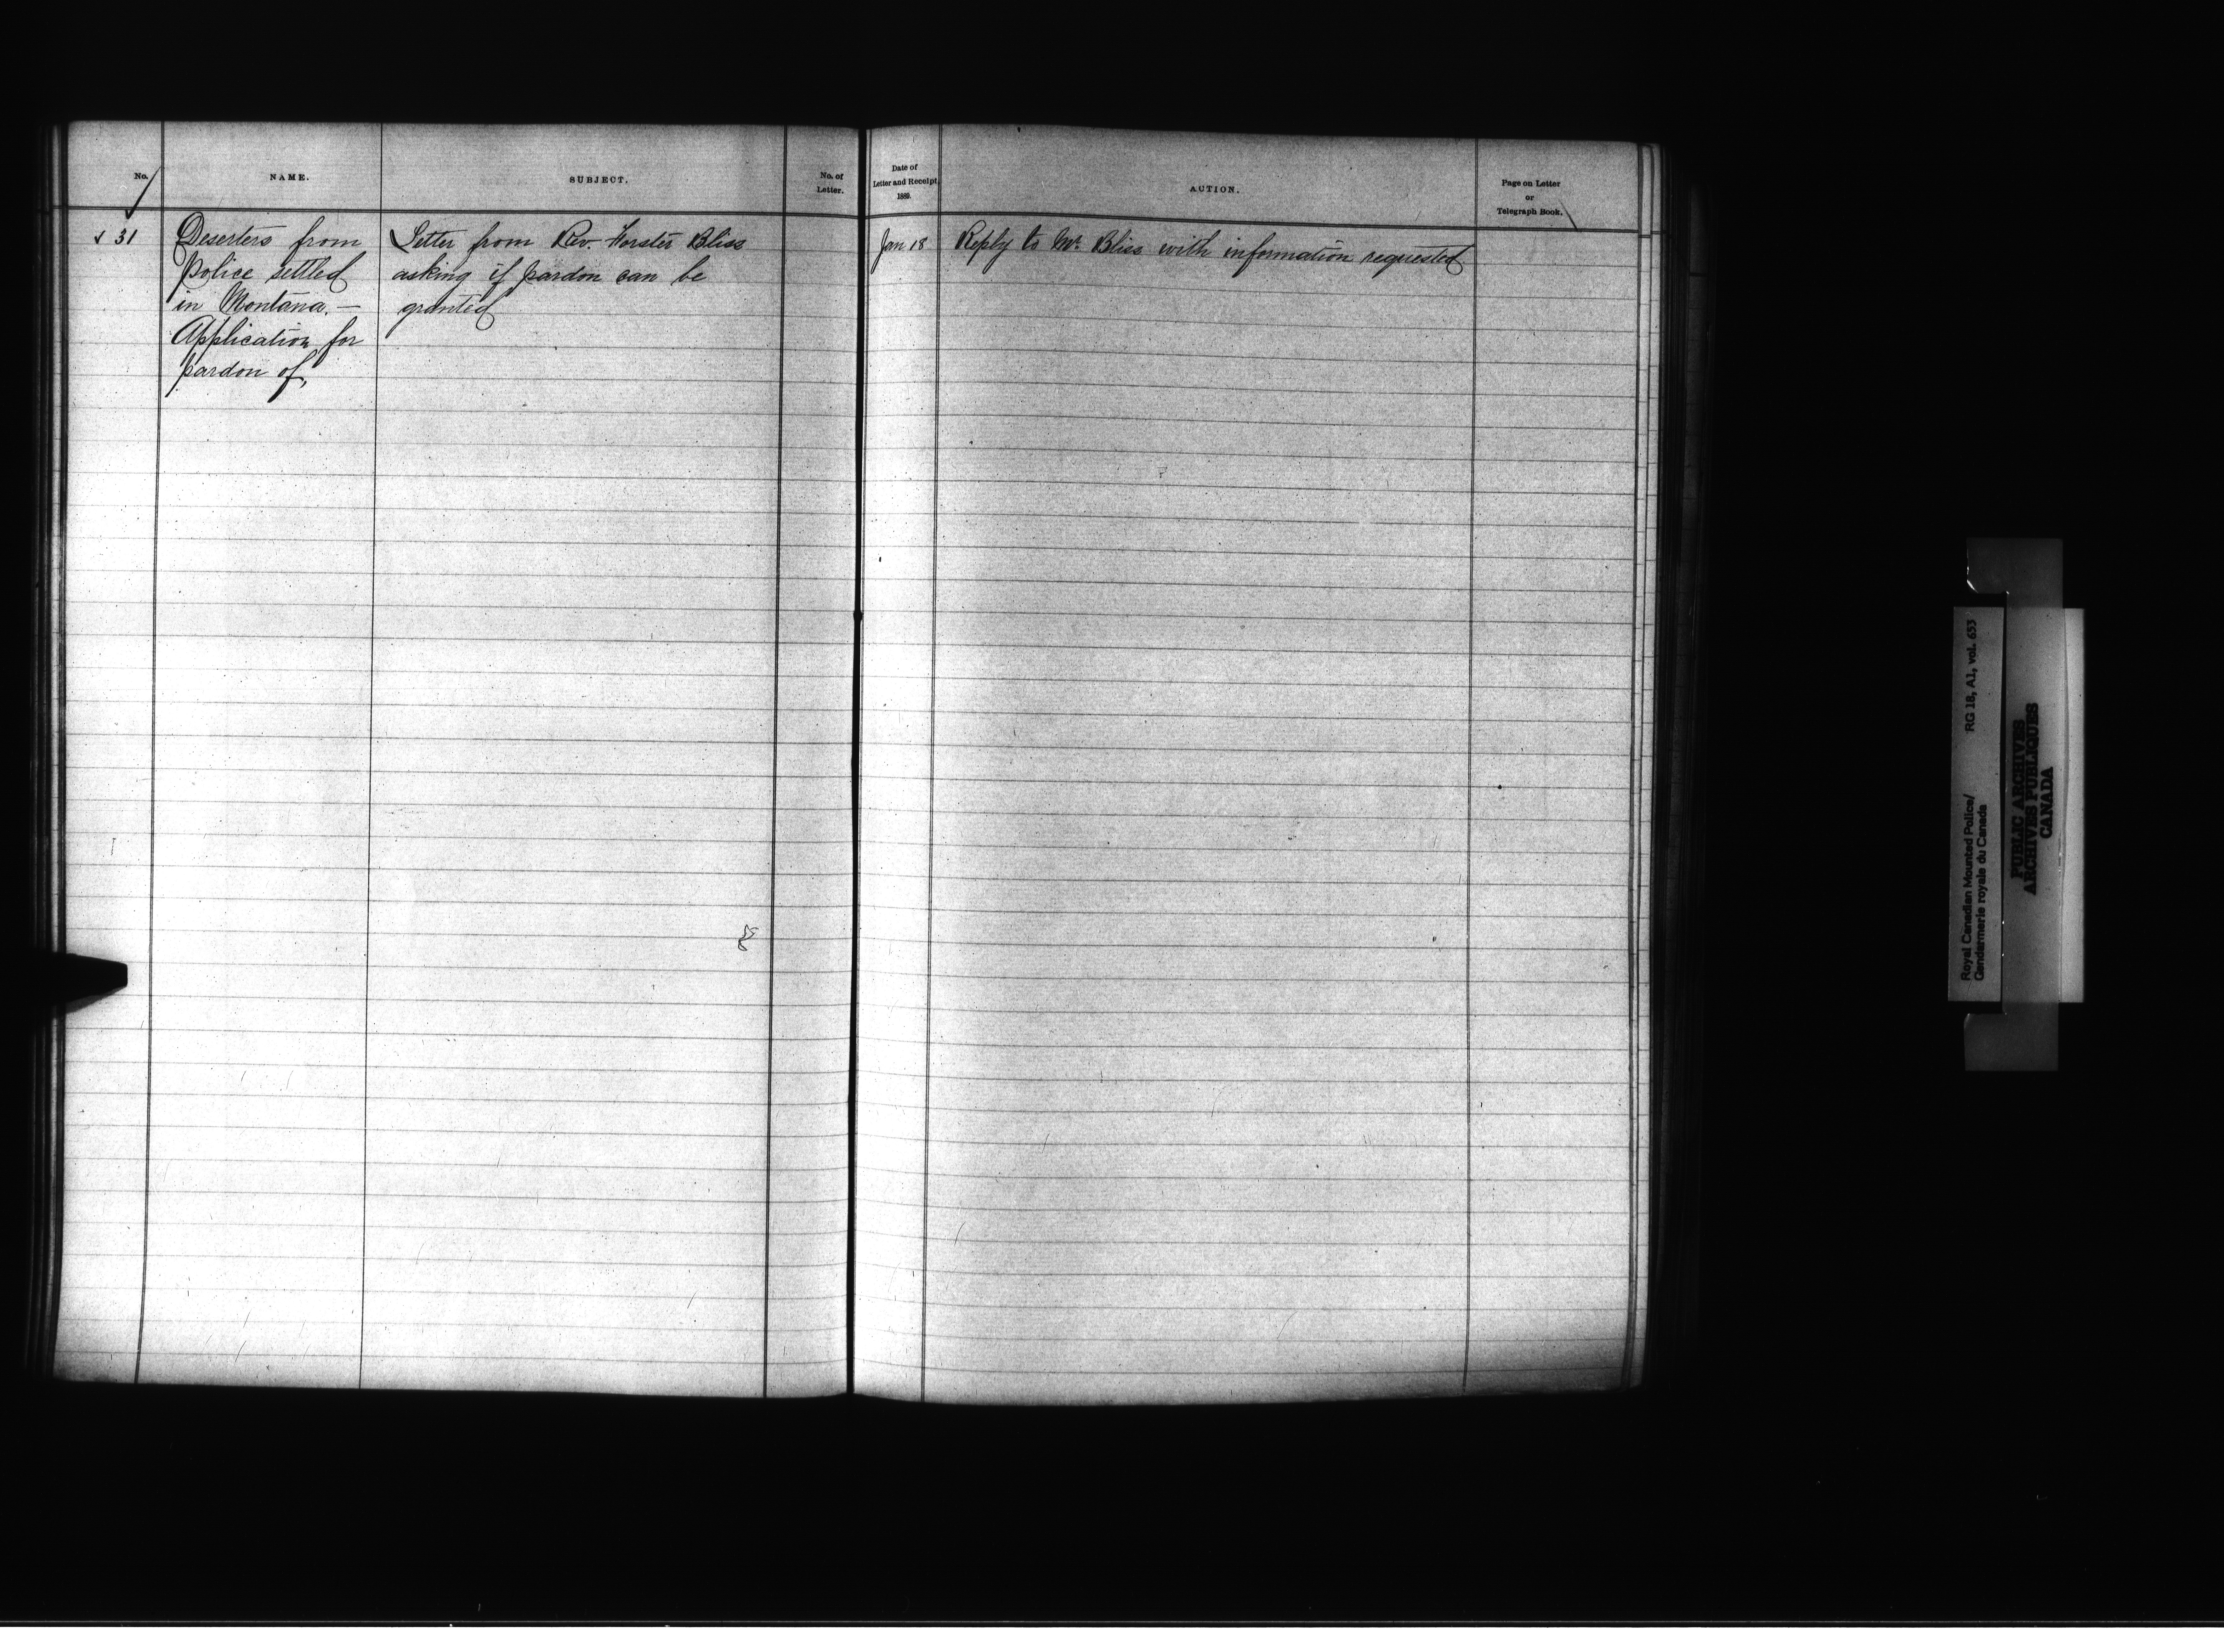 No.
NAME.
SUBJECT.
No. of
Letter.
Date of
Letter and Receipt,
1889.
ACTION.
Page on Letter
or
Telegraph Book.
31
Deserters from
Police settled
in Montana. —
Application for
pardon of,
Letter from Rev. Forster Bliss
asking if pardon can be
granted
Jan. 18
Reply to Mr. Bliss with information requested
Royal Canadian Mounted Police/
Gendarmerie royale du Canada
RG 18, A1, vol. 653
PUBLIC ARCHIVES
ARCHIVES PUBLIQUES
CANADA